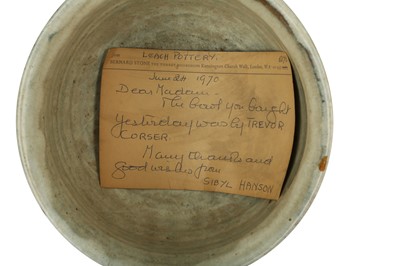 LEACH POTTERY.
June 26 1970
Dear Madam -
The bowl you bought
yesterday was by TREVOR
CORSER
Many thanks and
good wishes from
SIBYL HANSON